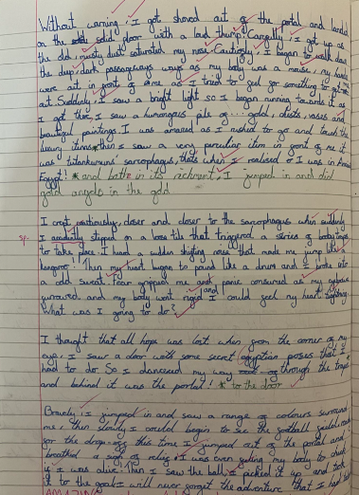 Without warning, I got shoved out of the portal and landed
on the solid door with a loud thump. Carefully, I got up as
the old, musty dust saturated my nose. Cautiously, I began to walk down
the deep, dark passageways as my body was a mouse, my hands
were out in front of me as I tried to feel for something to get
out. Suddenly, I saw a bright light so I began running towards it as
I got there, I saw a humongous pile of gold, chests, vases and
beautiful paintings. I was amazed as I rushed to go and touch the
items then I saw a very peculiar item in front of me it
was titankumuns' sarcophagus, thats when I realised I was in
Egypt! and in its I jumped in and did
gold angels in the gold
I crept closer and closer to the sarcophagus when suddenly
sp. I slipped on a loose tile that triggered a series of
to take place. I heard a sudden shifting noise that made me jump like a
kangaroo! Then my heart began to pound like a drum and I broke into
a cold sweat. Fear gripped me and panic consumed as my eyebrows
and my body went rigid and I could feel my heart
What was I going to do?
I thought that all hope was lost when from the corner of my
eye, I saw a door with some secret egyptian poses that I
had to do. So I danced my way through the
and behind it was the portal! to the door
Bravely, I jumped in and saw a range of colours surround
me, then slowly I could begin to see the football
for the drop off this time I jumped out of the portal and
breathed a sigh of relief, I was even my body to check
if I was alive. Then I saw the ball, I picked it up and took
it to the goal. I will never forget the adventure that I had
AMAZING